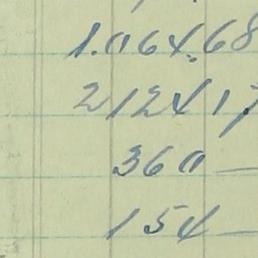 1.064.68
212417
360 —
154 —